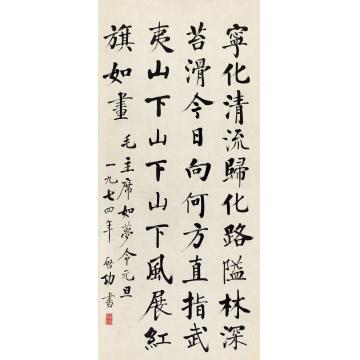 寧化清流歸化路隘林深
苔滑今日向何方直指武
夷山下山下山下風展紅
旗如畫
毛主席如夢令元旦
一九七四年 啓功書